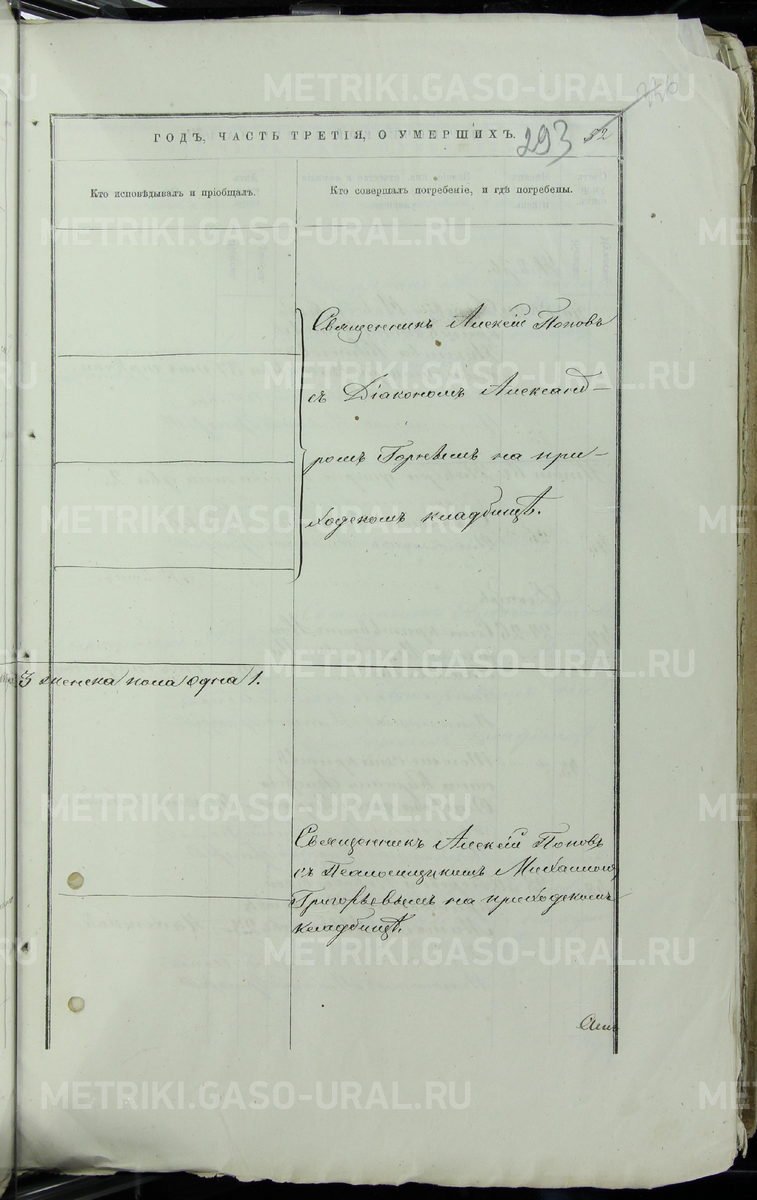 ГОДЪ, ЧАСТЬ ТРЕТІЯ, О УМЕРШИХЪ.
293
52
Кто исповѣдывалъ и пріобщалъ.
Кто совершалъ погребеніе, и гдѣ погребены.
Священникъ Алексѣй Поповъ
съ Діакономъ Александ-
ромъ Горнымъ на при-
ходскомъ кладбищѣ.
3 женска пола одна 1.
Священникъ Алексѣй Поповъ
съ Псаломщикомъ Михаиломъ
Григорьевымъ на приходскомъ
кладбищѣ.
METRIKI.GASO-URAL.RU